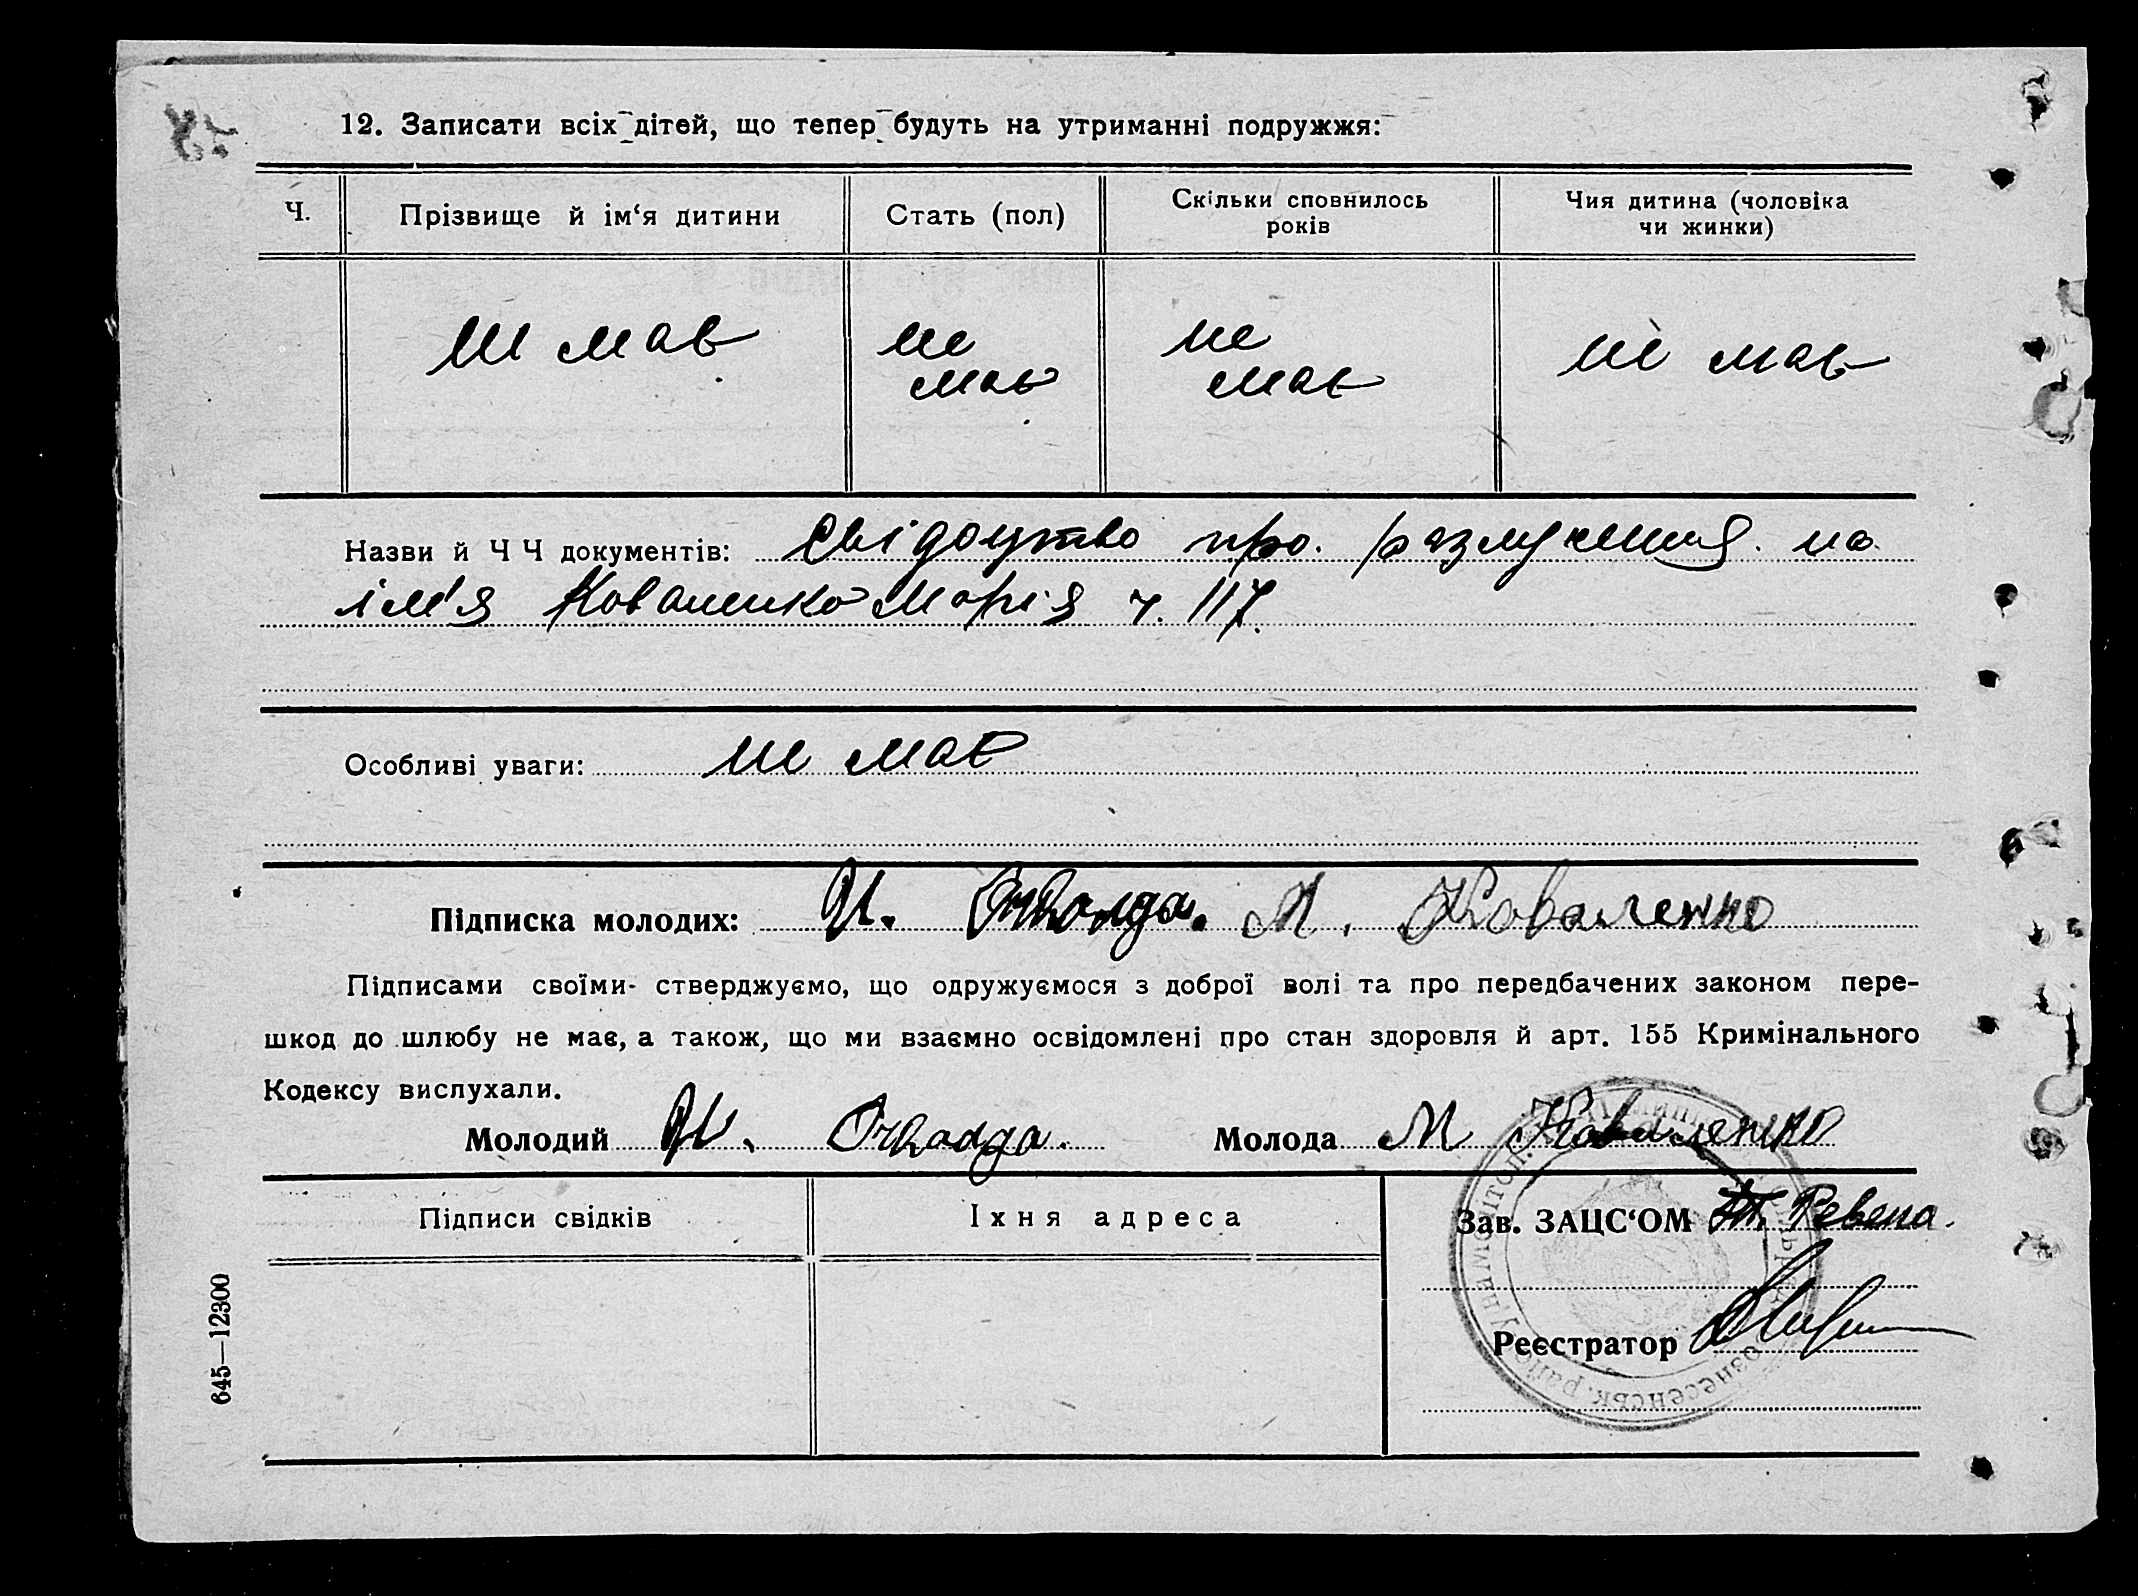 12. Записати всіх дітей, що тепер будуть на утриманні подружжя:
Ч.
Прізвище й ім‘я дитини
Стать (пол)
Скільки сповнилось
років
Чия дитина (чоловіка
чи жинки)
не має
не
має
не
має
не має
Назви й Ч Ч документів: Свідоцтво про. размучення на
ім'я Коваленко Марія ч. 117.
Особливі уваги: не має
Підписка молодих: М. Коваленко
Підписами своїми- стверджуємо, що одружуємося з доброї волі та про передбачених законом пере-
шкод до шлюбу не має, а також, що ми взаємно освідомлені про стан здоровля й арт. 155 Кримінального
Кодексу вислухали.
Молодий Молода М Коваленко
Підписи свідків
Їхня адреса
Зав. ЗАЦС‘ОМ Ревена.
Реєстратор
645—12300